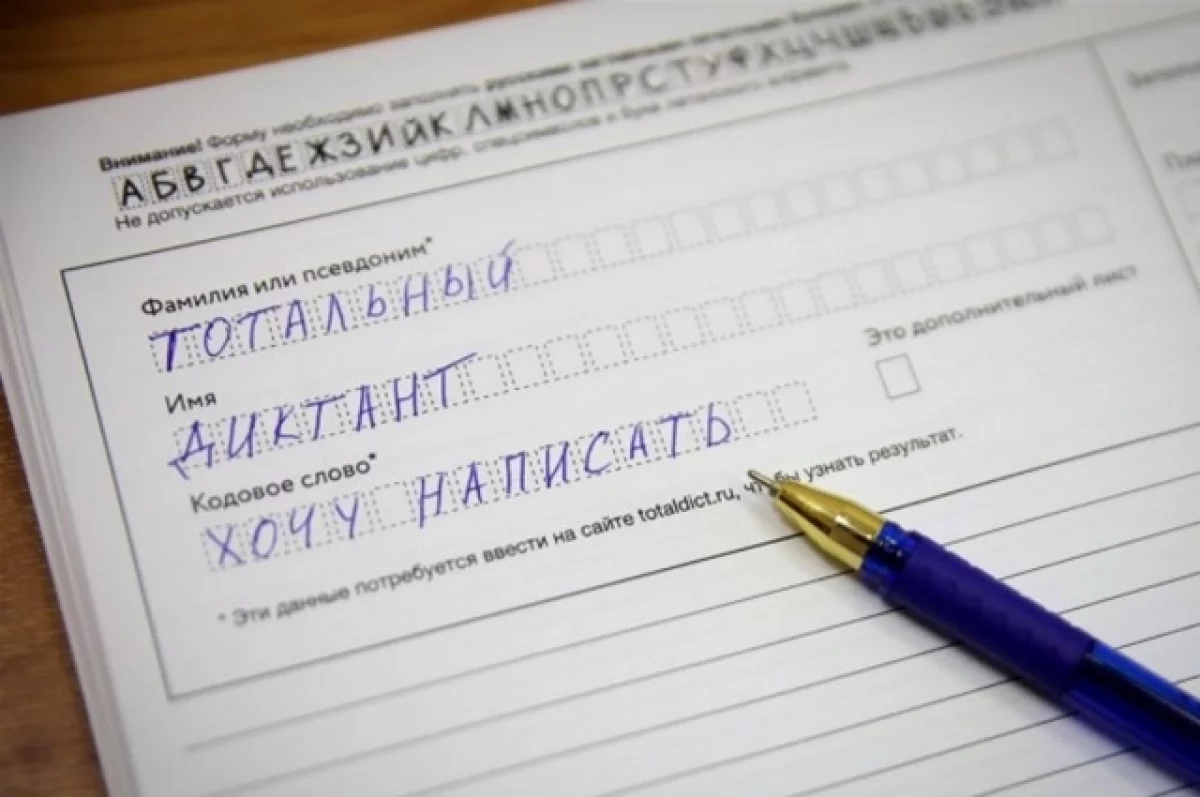 Внимание! Форму необходимо заполнять русскими
АБВГДЕЖЗИЙКЛМНОПРСТУФХЦЧШЩЪЫЬЭЮЯ
Не допускается использование цифр, спецсимволов и букв латинского алфавита.
Фамилия или псевдоним*
ТОТАЛЬНЫЙ
Имя
ДИКТАНТ
Это дополнительный лист
Кодовое слово*
ХОЧУ НАПИСАТЬ
* Эти данные потребуется ввести на сайте totaldict.ru, чтобы узнать результат.